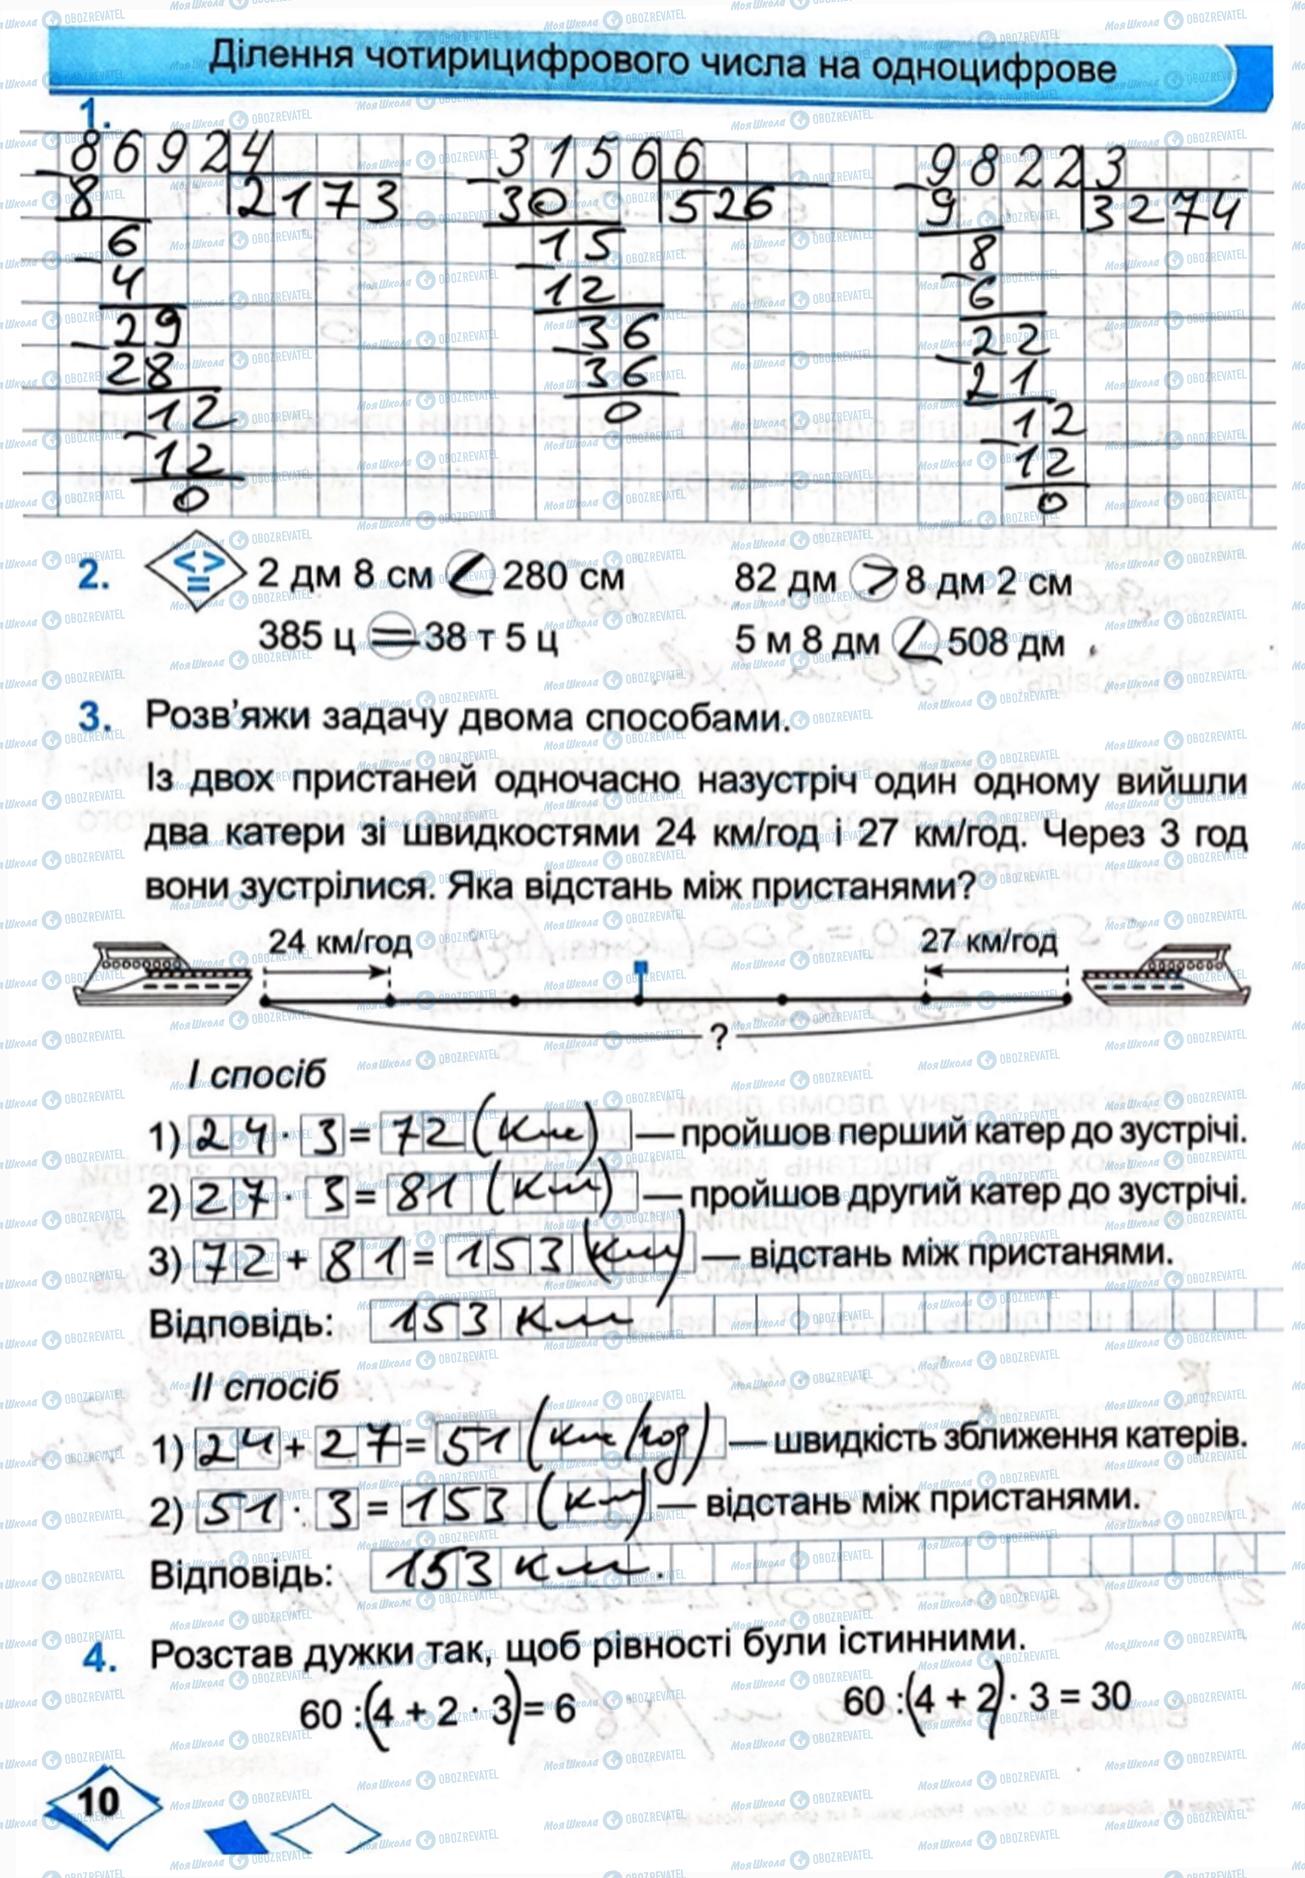 Ділення чотирицифрового числа на одноцифрове
1.
8692 4   3156 6   9822 3
8 2173   30 526   9 3274
6   15   8
4   12   6
29   36   22
28   36   21
12   0   12
12   12
0   0
2. < > = 2 дм 8 см < 280 см   82 дм > 8 дм 2 см
385 ц = 38 т 5 ц   5 м 8 дм < 508 дм
3. Розв’яжи задачу двома способами.
Із двох пристаней одночасно назустріч один одному вийшли
два катери зі швидкостями 24 км/год і 27 км/год. Через 3 год
вони зустрілися. Яка відстань між пристанями?
24 км/год   27 км/год
?
І спосіб
1) 24 · 3 = 72 (км) — пройшов перший катер до зустрічі.
2) 27 · 3 = 81 (км) — пройшов другий катер до зустрічі.
3) 72 + 81 = 153 (км) — відстань між пристанями.
Відповідь: 153 км
ІІ спосіб
1) 24 + 27 = 51 (км/год) — швидкість зближення катерів.
2) 51 · 3 = 153 (км) — відстань між пристанями.
Відповідь: 153 км.
4. Розстав дужки так, щоб рівності були істинними.
60 :(4 + 2 · 3)= 6   60 :(4 + 2) · 3 = 30
10
МояШкола OBOZREVATEL